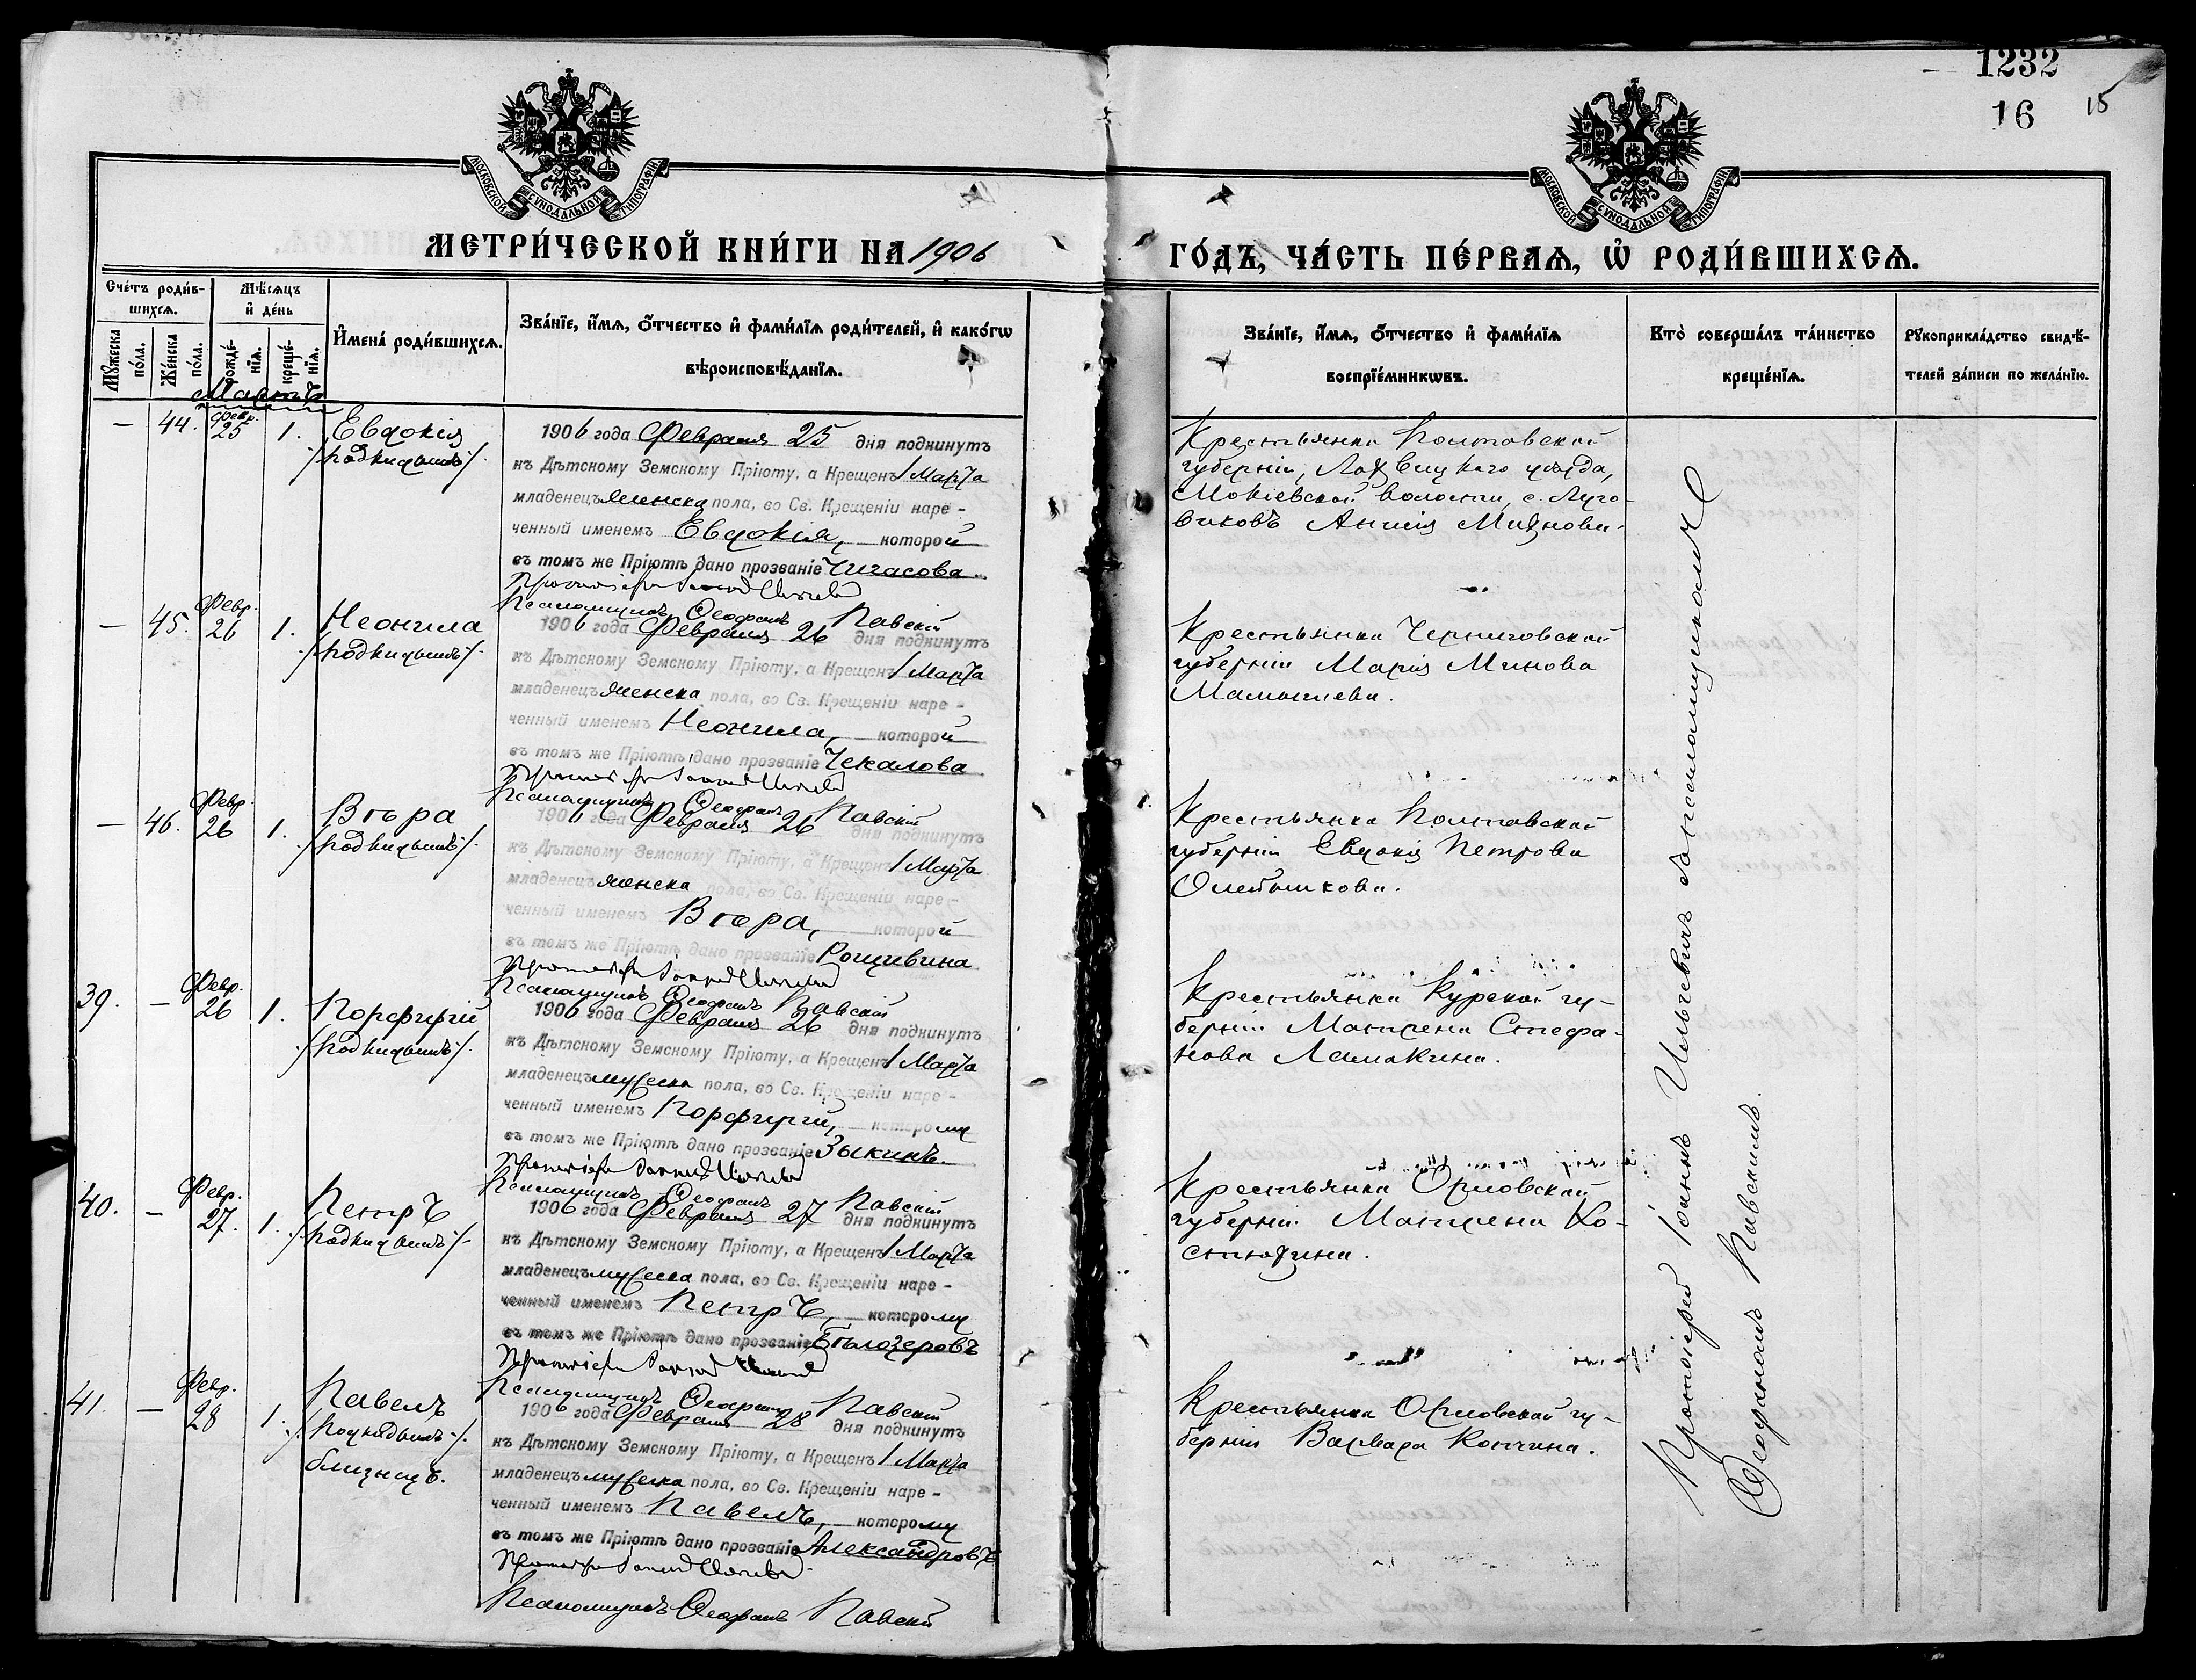 1232
16
15
МОСКОВСКОЙ СѴНОДАЛЬНОЙ ТИПОГРАФІИ
МОСКОВСКОЙ СѴНОДАЛЬНОЙ ТИПОГРАФІИ
МЕТРИ́ЧЕСКОЙ КНИ́ГИ НА 1906
ГО́ДЪ, ЧА́СТЬ ПЕ́РВАѦ, Ѡ҆ РОДИ́ВШИХСѦ.
Сче́тъ роди́в-
шихсѧ.
Мꙋ́жеска по́ла.
Же́нска по́ла.
Мѣ́сѧцъ
и҆ де́нь
рожде́-
нїѧ.
креще́-
нїѧ.
И҆мена̀ роди́вшихсѧ.
Зва́нїе, и҆́мѧ, ѻ҆́тчество и҆ фами́лїѧ роди́телей, и҆ како́гѡ
вѣроисповѣ́данїѧ.
Зва́нїе, и҆́мѧ, ѻ҆́тчество и҆ фами́лїѧ
воспрїе́мникѡвъ.
Кто̀ соверша́лъ та́инство
креще́нїѧ.
Рꙋкоприкла́дство свидѣ́-
телей за́писи по жела́нїю.
Мартъ
— 44. Февр. 25 1. Евдокія
/подкидышъ/.
1906 года Февраля 25 дня подкинутъ
къ Дѣтскому Земскому Пріюту, а Крещенъ 1 Марта
младенецъ женска пола, во Св. Крещеніи наре-
ченный именемъ Евдокія, которой
въ томъ же Пріютѣ дано прозваніе Чигасова.
Псаломщикъ Ѳеофанъ Павскій
Крестьянка Полтавской
губерніи, Лохвицкаго уѣзда,
Мокіевской волости, с. Луго-
виковъ
— 45. Февр. 26 1. Неонила
/подкидышъ/.
1906 года Февраля 26 дня подкинутъ
къ Дѣтскому Земскому Пріюту, а Крещенъ 1 Марта
младенецъ женска пола, во Св. Крещеніи наре-
ченный именемъ Неонила, которой
въ томъ же Пріютѣ дано прозваніе Чекалова
Псаломщикъ Ѳеофанъ Павскій
Крестьянка Черниговской
губерніи Марія Минова
— 46. Февр. 26 1. Вѣра
/подкидышъ/.
1906 года Февраля 26 дня подкинутъ
къ Дѣтскому Земскому Пріюту, а Крещенъ 1 Марта
младенецъ женска пола, во Св. Крещеніи наре-
ченный именемъ Вѣра, которой
въ томъ же Пріютѣ дано прозваніе Рощивина
Псаломщикъ Ѳеофанъ Павскій
Крестьянка Полтавской
губерніи Евдокія Петрова
39. — Февр. 26 1. Порфирій
/подкидышъ/.
1906 года Февраля 26 дня подкинутъ
къ Дѣтскому Земскому Пріюту, а Крещенъ 1 Марта
младенецъ мужеска пола, во Св. Крещеніи наре-
ченный именемъ Порфирій, которому
въ томъ же Пріютѣ дано прозваніе Зыкинъ.
Псаломщикъ Ѳеофанъ Павскій
Крестьянка Курской гу-
берніи Матрена Стефа-
нова Ламакина.
40. — Февр. 27. 1. Петръ
/подкидышъ/.
1906 года Февраля 27 дня подкинутъ
къ Дѣтскому Земскому Пріюту, а Крещенъ 1 Марта
младенецъ мужеска пола, во Св. Крещеніи наре-
ченный именемъ Петръ, которому
въ томъ же Пріютѣ дано прозваніе Бѣлозеровъ
Псаломщикъ Ѳеофанъ Павскій
Крестьянка Орловской
губерніи Матрена Ко-
стюхина.
41. — Февр. 28 1. Павелъ
/подкидышъ/.
близнецъ.
1906 года Февраля 28 дня подкинутъ
къ Дѣтскому Земскому Пріюту, а Крещенъ 1 Марта
младенецъ мужеска пола, во Св. Крещеніи наре-
ченный именемъ Павелъ, которому
въ томъ же Пріютѣ дано прозваніе Александровъ
Псаломщикъ Ѳеофанъ Павскій
Крестьянка Орловской гу-
берніи Варвара Копчина.
Протоіерей Іоаннъ Ильичевъ съ псаломщикомъ
Ѳеофаномъ Павскимъ.